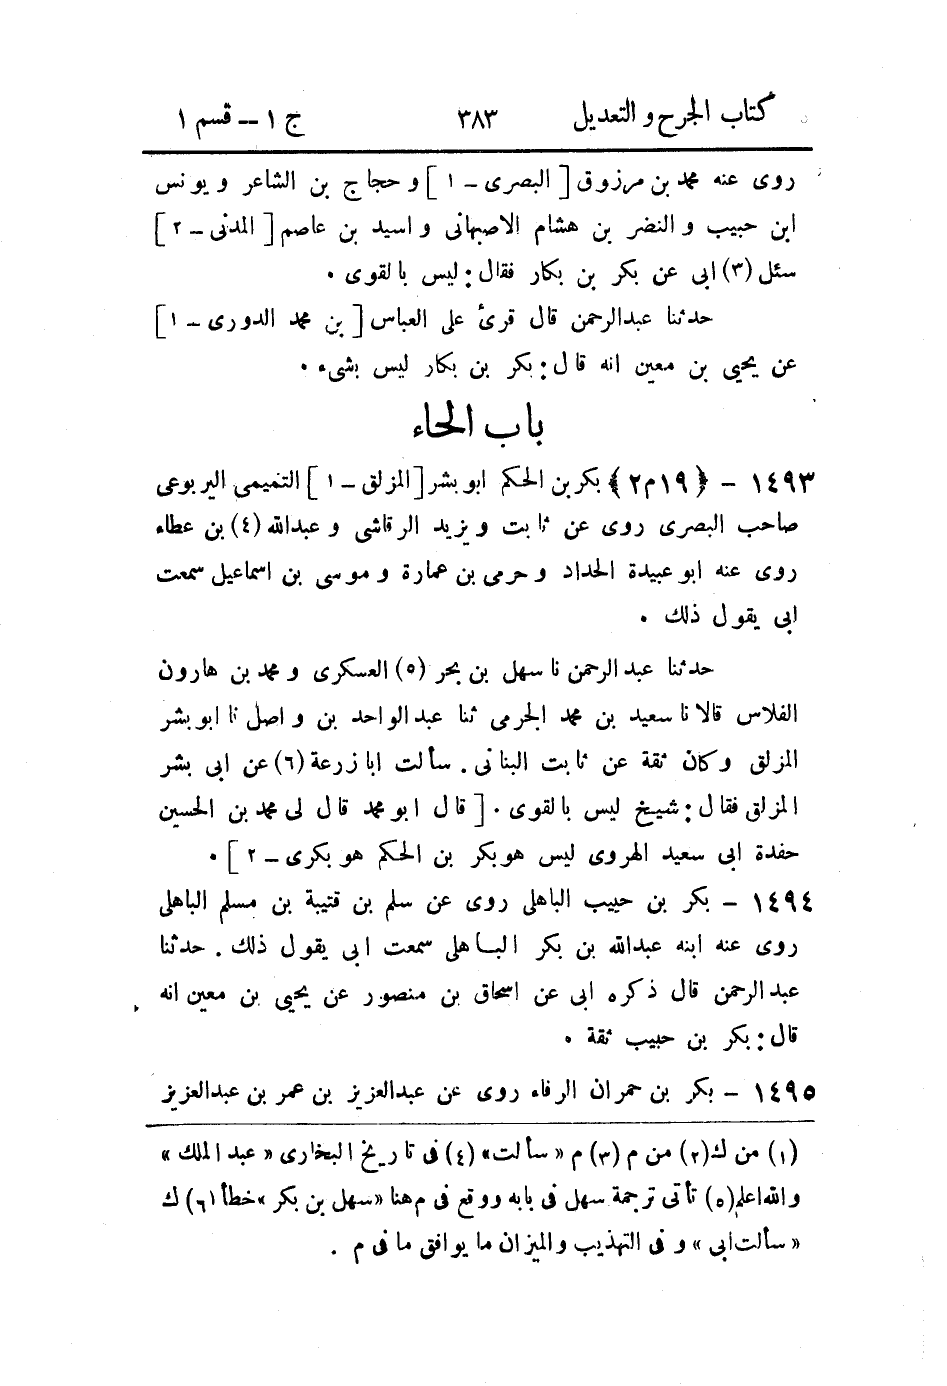 كتاب الجرح والتعديل ٣٨٣ ج ١ – قسم ١
روى عنه محمد بن مرزوق [ البصرى – ١ ] و حجاج بن الشاعر و يونس
ابن حبيب و النضر بن هشام الاصبهانى و اسيد بن عاصم [ المدنى – ٢ ]
سئل (٣) ابى عن بكر بن بكار فقال : ليس بالقوى .
حدثنا عبدالرحمن قال قرئ على العباس [ بن محمد الدورى – ١ ]
عن يحيى بن معين انه قال : بكر بن بكار ليس بشىء .
باب الحاء
١٤٩٣ – ﴿١٩م٢﴾ بكر بن الحكم ابو بشر [ المزلق – ١ ] التميمى اليربوعى
صاحب البصرى روى عن ثابت و يزيد الرقاشى و عبدالله (٤) بن عطاء
روى عنه ابو عبيدة الحداد و حرمى بن عمارة و موسى بن اسماعيل سمعت
ابى يقول ذلك .
حدثنا عبد الرحمن نا سهل بن بحر (٥) العسكرى و محمد بن هارون
الفلاس قالا نا سعيد بن محمد الجرمى ثنا عبد الواحد بن و اصل نا ابو بشر
المزلق وكان ثقة عن ثابت البنانى . سألت ابا زرعة (٦) عن ابى بشر
المزلق فقال : شيخ ليس بالقوى . [ قال ابو محمد قال لى محمد بن الحسين
حفدة ابى سعيد الهروى ليس هو بكر بن الحكم هو بكرى – ٢ ] .
١٤٩٤ – بكر بن حبيب الباهلى روى عن سلم بن قتيبة بن مسلم الباهلى
روى عنه ابنه عبدالله بن بكر الباهلى سمعت ابى يقول ذلك . حدثنا
عبد الرحمن قال ذكره ابى عن اسحاق بن منصور عن يحيى بن معين انه
قال : بكر بن حبيب ثقة .
١٤٩٥ – بكر بن حمران الرفاء روى عن عبدالعزيز بن عمر بن عبدالعزيز
(١) من ك (٢) من م (٣) م «سألت» (٤) فى تاريخ البخارى « عبد الملك »
والله اعلم (٥) تأتى ترجمة سهل فى بابه ووقع فى م هنا «سهل بن بكر» خطأ (٦) ك
«سألت ابى» و فى التهذيب والميزان ما يوافق ما فى م .